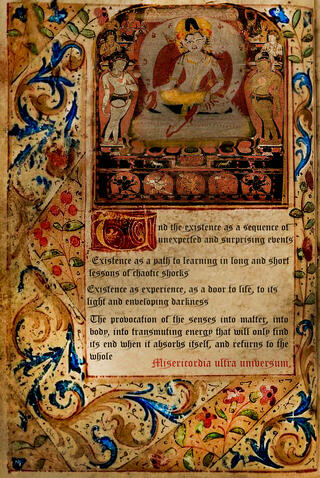 And the existence as a sequence of
unexpected and surprising events
Existence as a path to learning in long and short
lessons of chaotic shocks
Existence as experience, as a door to life, to its
light and enveloping darkness
The provocation of the senses into matter, into
body, into transmuting energy that will only find
its end when it absorbs itself, and returns to the
whole
Misericordia ultra universum,